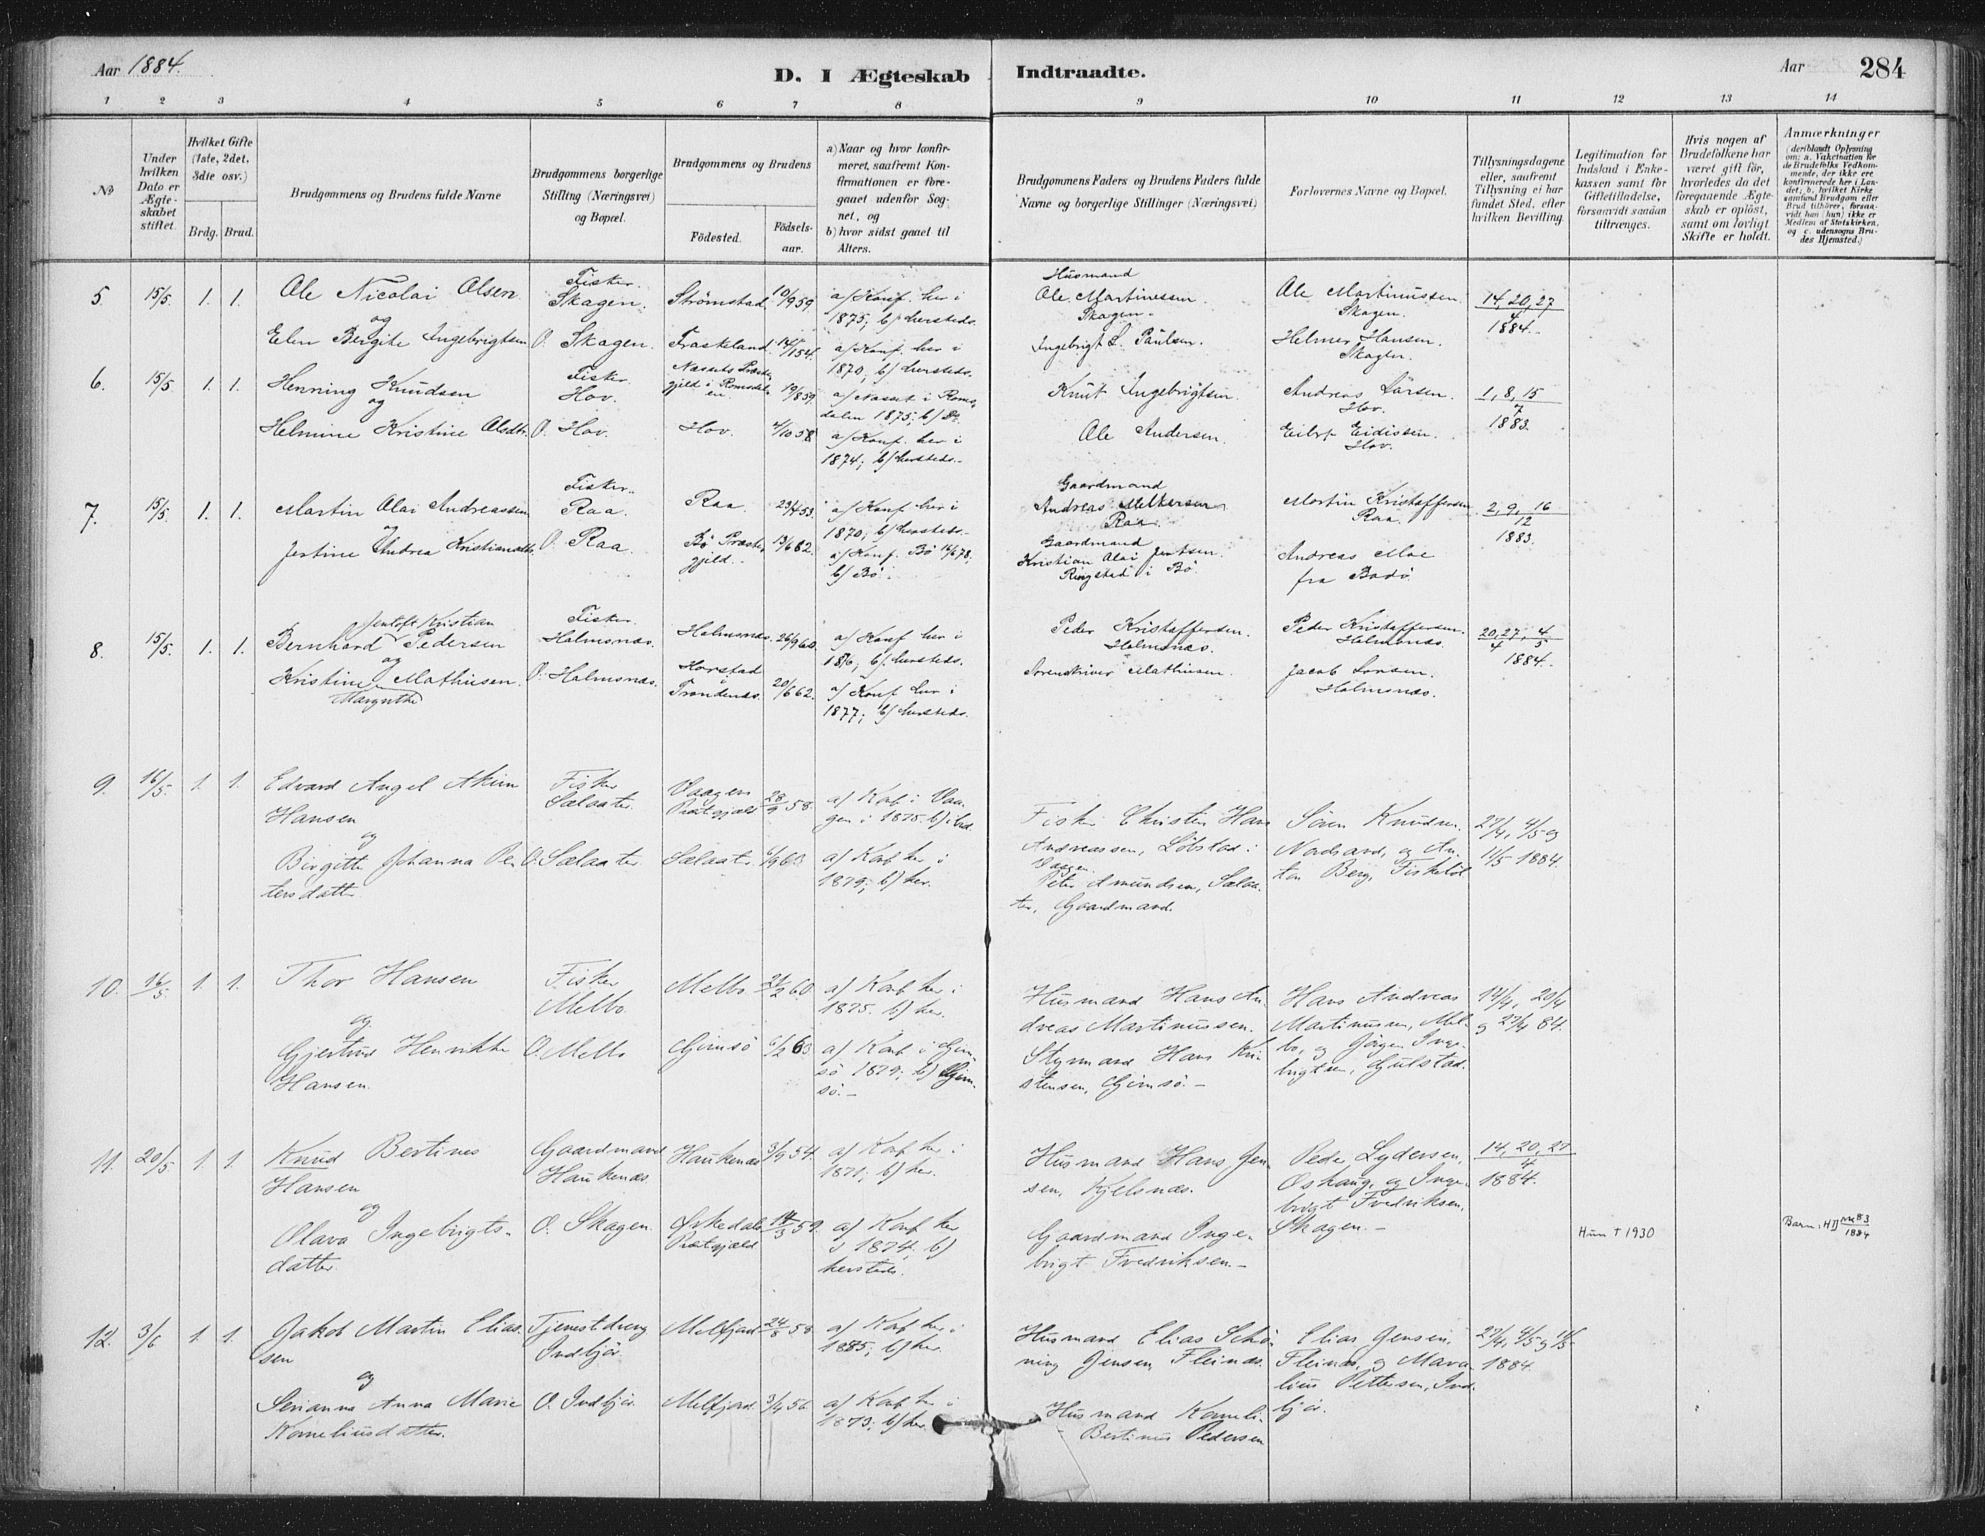 Aar 1884.
D. I Ægteskab Indtraadte.
Aar 284
1 2 3 4 5 6 7 8 9 10 11 12 13 14
No
Under hvilken Dato er Ægteskabet stiftet.
Hvilket Gifte (1ste, 2det, 3die osv.)
Brdg. Brud.
Brudgommens og Brudens fulde Navne
Brudgommens borgerlige Stilling (Næringsvei) og Bopæl.
Brudgommens og Brudens
Födested. Födselsaar.
a) Naar og hvor konfirmeret, saafremt Konfirmationen er foregaaet udenfor Sognet, og
b) hvor sidst gaaet til Alters.
Brudgommens Faders og Brudens Faders fulde Navne og borgerlige Stillinger (Næringsvei)
Forlovernes Navne og Bopæl.
Tillysningsdagene eller, saafremt Tillysning ei har fundet Sted, efter hvilken Bevilling.
Legitimation for Indskud i Enkekassen samt for Giftetilladelse, forsaavidt saadan tiltrænges.
Hvis nogen af Brudefolkene har været gift för, hvorledes da det foregaaende Ægteskab er oplöst, samt om lovligt Skifte er holdt.
Anmærkninger (deriblandt Oplysning om: a. Vakcination for de Brudefolks Vedkommende, der ikke ere konfirmerede her i Landet; b. hvilket Kirkesamfund Brudgom eller Brud tilhörer, forsaavidt han (hun) ikke er Medlem af Statskirken, og c. udensogns Brudes Hjemsted.)
5 15/5 1. 1. Ole Nicolai Olsen Fisker. Skagen. Strömstad. 10/9 59 a/ Konf. her i 1875; b/ hersteds.
Husmand Ole Martinessen Skagen. Ole Martinussen Skagen. 14, 20, 27/4 1884.
og
Elen Bergite Ingebrigtsen O. Skagen. Fraskeland 14/1 54. a/ Konf. her i 1870; b/ hersteds.
Ingebrigt L. Paulsen. Helmer Hansen. Skagen.
6. 15/5 1. 1. Henning Knudsen Fisker Hov. Nassets Præstegjeld i Romsdalen. 19/8 59. a/ Nasset i Romsdalen 1875; b/ Do
Knut Ingebrigtsen Andreas Larsen. Hov. 1, 8, 15/7 1883.
og
Helmine Kristine Olsdtr. O. Hov. Hov. 4/10 58. a/ Konf. her i 1874; b/ hersteds.
Ole Andersen. Eilert Eidissen. Hov.
7. 15/5 1. 1. Martin Olai Andreassen Fisker. Raa. Raa. 23/4 53. a/ Konf. her i 1870; b/ hersteds.
Gaardmand Andreas Melkersen Raa. Martin Kristoffersen Raa. 2, 9, 16/12 1883.
og
Jertine Andrea Kristiansdtr. O. Raa. Bö Præstegjeld. 13/6 62. a/ Konf. Bö 14/6 78, b/ Bö.
Gaardmand Kristian Olai Jentsen. Ringstad i Bö. Andreas Moe fra Bodö.
8. 15/5. 1. 1. Bernhard Jentoft Kristian Pedersen Fisker. Holmsnæs. Holmsnæs. 26/9 60. a/ Konf her i 1876; b/ hersteds.
Peder Kristoffersen. Holmsnæs. Peder Kristoffersen. Holmsnæs. 20, 27/4, 4/5 1884.
og
Kristine Margrethe Mathisen. O. Holmsnæs. Harstad Trondenæs. 20/6 62. a/ Konf her i 1877; b/ hersteds.
Sorenskriver Mathisen. Jacob Larsen. Holmsnæs.
9. 16/5. 1. 1. Edvard Angel Akim Hansen Fisker Sælaater Vaagen Præstgjæld 28/9 58. a) Konf i Vaagen i 1875. b) ibid
Fisker Christen Hans Andreassen, Löbstad i Vaagen. Sören Knudsen. Nordsand, og Anton Berg, Fiskeböl 27/4, 4/5 og 11/5 1884.
og
Birgitte Johanna Pettersdatter O. Sælaater Sælaater 6/9 60. a) Konf her i 1879; b) her.
Peter Amundsen, Sælaater, Gaardmand.
10. 16/5 1. 1. Thor Hansen Fisker Melbo. Melbo 21/2 60. a) Konf her i 1875. b) her.
Husmand Hans Andreas Martinussen. Hans Andreas Martinussen, Melbo, og Jörgen Ingebrigtsen, Gulstad. 14/4, 20/4 og 27/4 84.
og
Gjertine Henrikke Hansen. O. Melbo Gimsö 6/2 63. a) Konf i Gimsö 1879; b) Gimsö.
Styrmand Hans Kristensen, Gimsö.
11. 20/5 1. 1. Knud Bertines Hansen Gaardmand Haukenæs. Haukenæs 3/9 54. a) Konf her i 1871; b) her.
Husmand Hans Jensen, Kjelsnæs. Peder Lydersen, Oshaug, og Ingebrigt Fredriksen, Skagen. 14, 20, 27/4 1884.
og
Olava Ingebrigtsdatter. O. Skagen. Örkedals Præstgjæld 14/3 59. a) Konf her i 1874; b) hersteds.
Gaardmand Ingebrigt Fredriksen.
Hun † 1930
Barn: HD nr 83 1884
12. 3/6 1. 1. Jakob Martin Eliassen Tjenestdreng Indbjör. Melfjord 24/8 58. a) Konf her i 1885; b) her.
Husmand Elias Schöning Jensen, Fleinæs. Elias Jensen, Fleinæs, og Maralius Pettersen, Indbjör. 27/4, 4/5 og 11/5 1884.
og
Serianna Anna Marie Korneliusdatter. O. Indbjör. Melfjord. 3/4 56. a) Konf her i 1873; b) her.
Husmand Korneli- Bertinus Pedersen